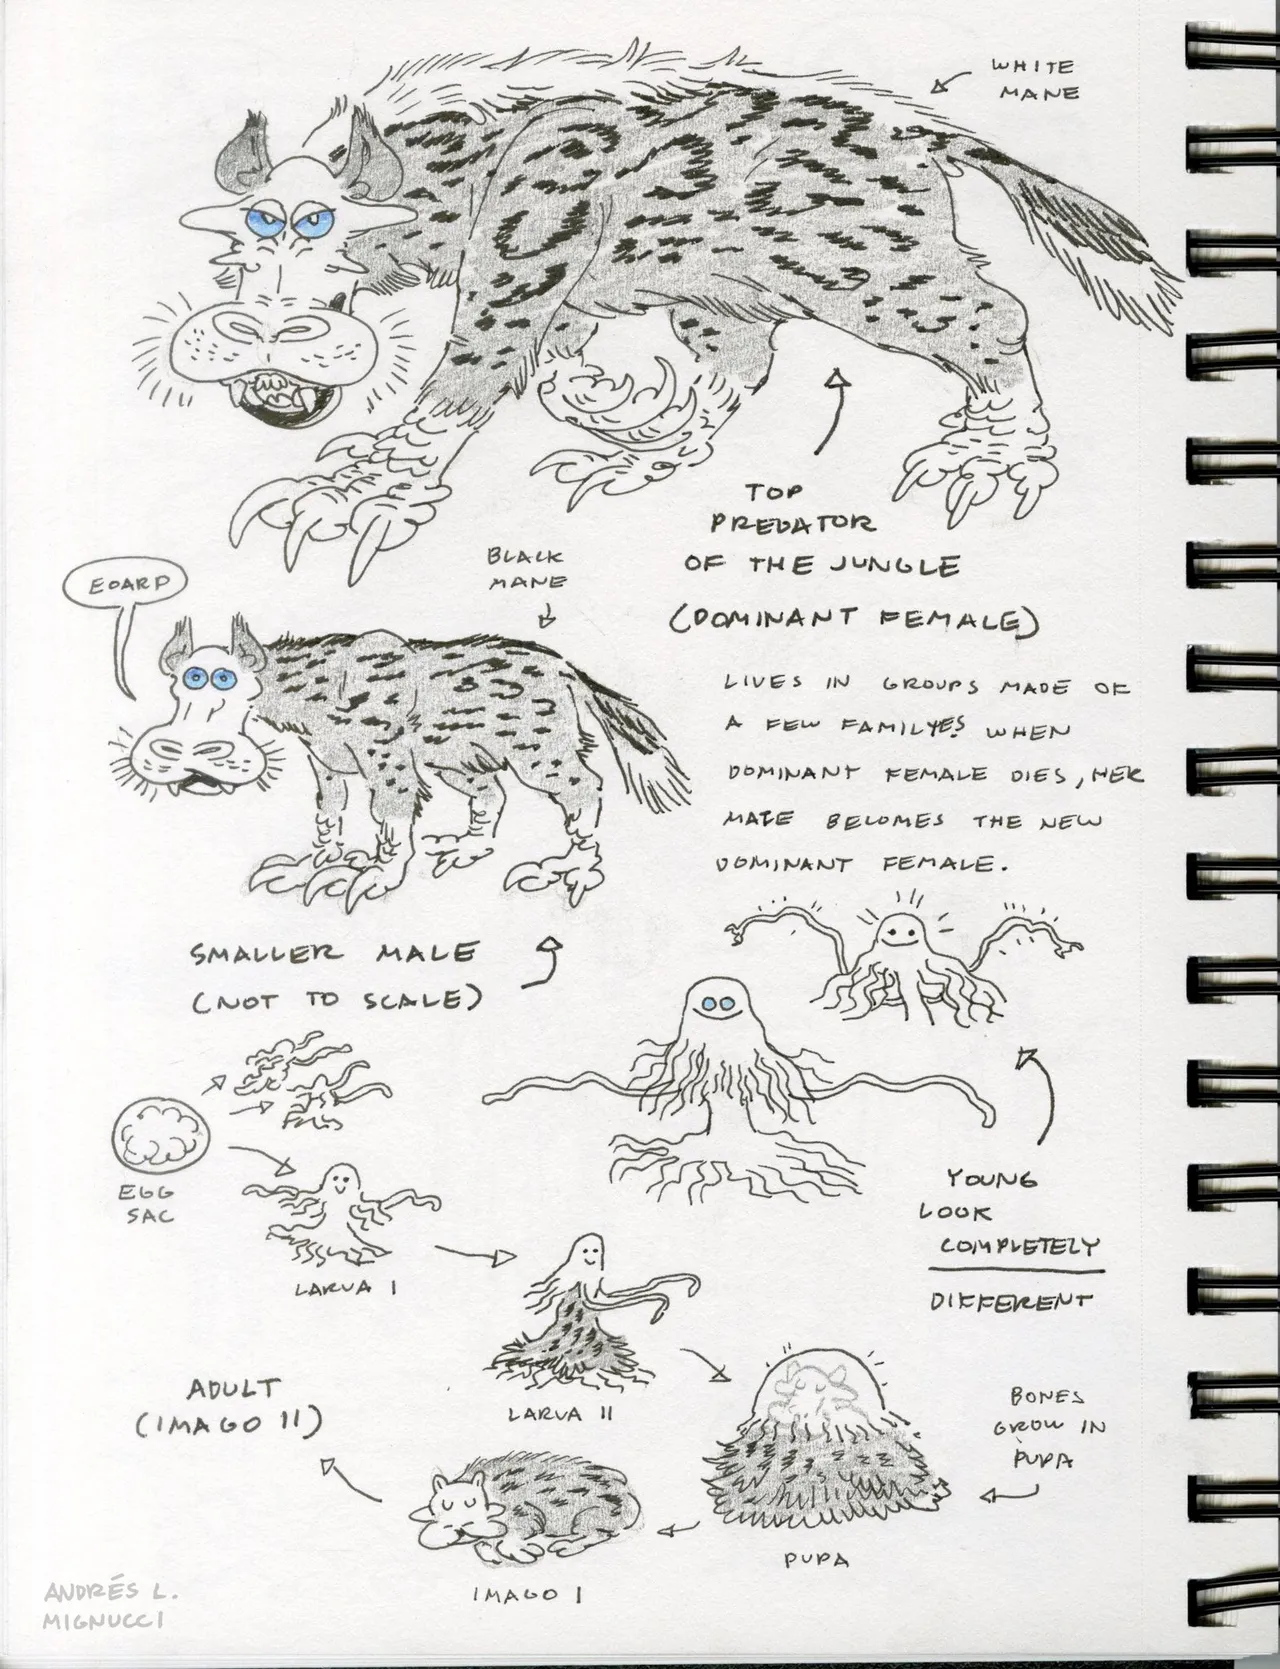 WHITE
MANE
TOP
PREDATOR
OF THE JUNGLE
(DOMINANT FEMALE)
BLACK
MANE
EOARP
LIVES IN GROUPS MADE OF
A FEW FAMILYES. WHEN
DOMINANT FEMALE DIES, HER
MATE BECOMES THE NEW
DOMINANT FEMALE.
SMALLER MALE
(NOT TO SCALE)
EGG
SAC
LARVA I
YOUNG
LOOK
COMPLETELY
DIFFERENT
LARVA II
BONES
GROW IN
PUPA
PUPA
IMAGO I
ADULT
(IMAGO II)
ANDRÉS L.
MIGNUCCI